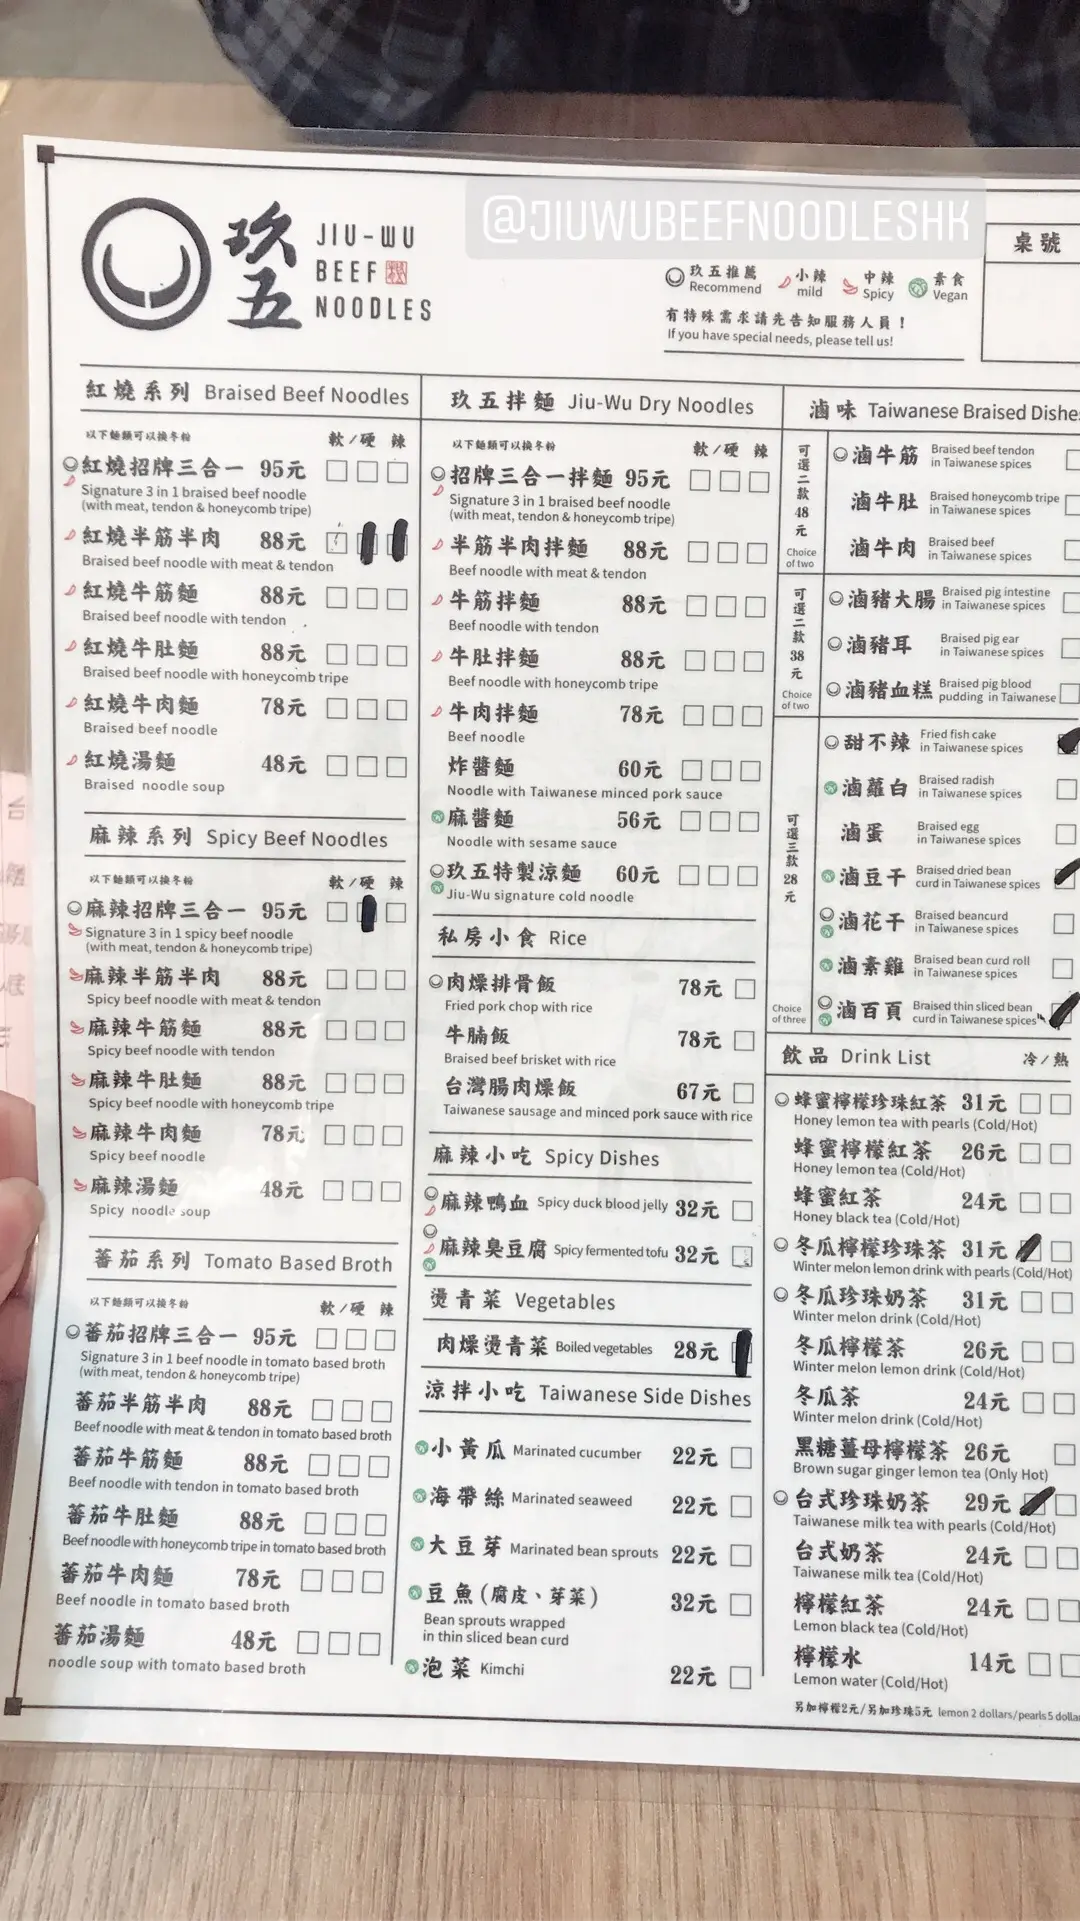 @JIUWUBEEFNOODLESHK
玖五
JIU-WU
BEEF
NOODLES
玖五推薦 Recommend
小辣 mild
中辣 Spicy
素食 Vegan
有特殊需求請先告知服務人員！
If you have special needs, please tell us!
桌號
紅燒系列 Braised Beef Noodles
以下麵類可以換冬粉 軟/硬 辣
紅燒招牌三合一 95元
Signature 3 in 1 braised beef noodle
(with meat, tendon & honeycomb tripe)
紅燒半筋半肉 88元
Braised beef noodle with meat & tendon
紅燒牛筋麵 88元
Braised beef noodle with tendon
紅燒牛肚麵 88元
Braised beef noodle with honeycomb tripe
紅燒牛肉麵 78元
Braised beef noodle
紅燒湯麵 48元
Braised noodle soup
麻辣系列 Spicy Beef Noodles
以下麵類可以換冬粉 軟/硬 辣
麻辣招牌三合一 95元
Signature 3 in 1 spicy beef noodle
(with meat, tendon & honeycomb tripe)
麻辣半筋半肉 88元
Spicy beef noodle with meat & tendon
麻辣牛筋麵 88元
Spicy beef noodle with tendon
麻辣牛肚麵 88元
Spicy beef noodle with honeycomb tripe
麻辣牛肉麵 78元
Spicy beef noodle
麻辣湯麵 48元
Spicy noodle soup
蕃茄系列 Tomato Based Broth
以下麵類可以換冬粉 軟/硬 辣
蕃茄招牌三合一 95元
Signature 3 in 1 beef noodle in tomato based broth
(with meat, tendon & honeycomb tripe)
蕃茄半筋半肉 88元
Beef noodle with meat & tendon in tomato based broth
蕃茄牛筋麵 88元
Beef noodle with tendon in tomato based broth
蕃茄牛肚麵 88元
Beef noodle with honeycomb tripe in tomato based broth
蕃茄牛肉麵 78元
Beef noodle in tomato based broth
蕃茄湯麵 48元
noodle soup with tomato based broth
玖五拌麵 Jiu-Wu Dry Noodles
以下麵類可以換冬粉 軟/硬 辣
招牌三合一拌麵 95元
Signature 3 in 1 braised beef noodle
(with meat, tendon & honeycomb tripe)
半筋半肉拌麵 88元
Beef noodle with meat & tendon
牛筋拌麵 88元
Beef noodle with tendon
牛肚拌麵 88元
Beef noodle with honeycomb tripe
牛肉拌麵 78元
Beef noodle
炸醬麵 60元
Noodle with Taiwanese minced pork sauce
麻醬麵 56元
Noodle with sesame sauce
玖五特製涼麵 60元
Jiu-Wu signature cold noodle
私房小食 Rice
肉燥排骨飯 78元
Fried pork chop with rice
牛腩飯 78元
Braised beef brisket with rice
台灣腸肉燥飯 67元
Taiwanese sausage and minced pork sauce with rice
麻辣小吃 Spicy Dishes
麻辣鴨血 Spicy duck blood jelly 32元
麻辣臭豆腐 Spicy fermented tofu 32元
燙青菜 Vegetables
肉燥燙青菜 Boiled vegetables 28元
涼拌小吃 Taiwanese Side Dishes
小黃瓜 Marinated cucumber 22元
海帶絲 Marinated seaweed 22元
大豆芽 Marinated bean sprouts 22元
豆魚(腐皮、芽菜) 32元
Bean sprouts wrapped
in thin sliced bean curd
泡菜 Kimchi 22元
滷味 Taiwanese Braised Dishes
可選二款48元
Choice of two
滷牛筋 Braised beef tendon in Taiwanese spices
滷牛肚 Braised honeycomb tripe in Taiwanese spices
滷牛肉 Braised beef in Taiwanese spices
可選二款38元
Choice of two
滷豬大腸 Braised pig intestine in Taiwanese spices
滷豬耳 Braised pig ear in Taiwanese spices
滷豬血糕 Braised pig blood pudding in Taiwanese
可選三款28元
Choice of three
甜不辣 Fried fish cake in Taiwanese spices
滷蘿白 Braised radish in Taiwanese spices
滷蛋 Braised egg in Taiwanese spices
滷豆干 Braised dried bean curd in Taiwanese spices
滷花干 Braised beancurd in Taiwanese spices
滷素雞 Braised bean curd roll in Taiwanese spices
滷百頁 Braised thin sliced bean curd in Taiwanese spices
飲品 Drink List 冷/熱
蜂蜜檸檬珍珠紅茶 31元
Honey lemon tea with pearls (Cold/Hot)
蜂蜜檸檬紅茶 26元
Honey lemon tea (Cold/Hot)
蜂蜜紅茶 24元
Honey black tea (Cold/Hot)
冬瓜檸檬珍珠茶 31元
Winter melon lemon drink with pearls (Cold/Hot)
冬瓜珍珠奶茶 31元
Winter melon drink (Cold/Hot)
冬瓜檸檬茶 26元
Winter melon lemon drink (Cold/Hot)
冬瓜茶 24元
Winter melon drink (Cold/Hot)
黑糖薑母檸檬茶 26元
Brown sugar ginger lemon tea (Only Hot)
台式珍珠奶茶 29元
Taiwanese milk tea with pearls (Cold/Hot)
台式奶茶 24元
Taiwanese milk tea (Cold/Hot)
檸檬紅茶 24元
Lemon black tea (Cold/Hot)
檸檬水 14元
Lemon water (Cold/Hot)
另加檸檬2元/另加珍珠5元 lemon 2 dollars/pearls 5